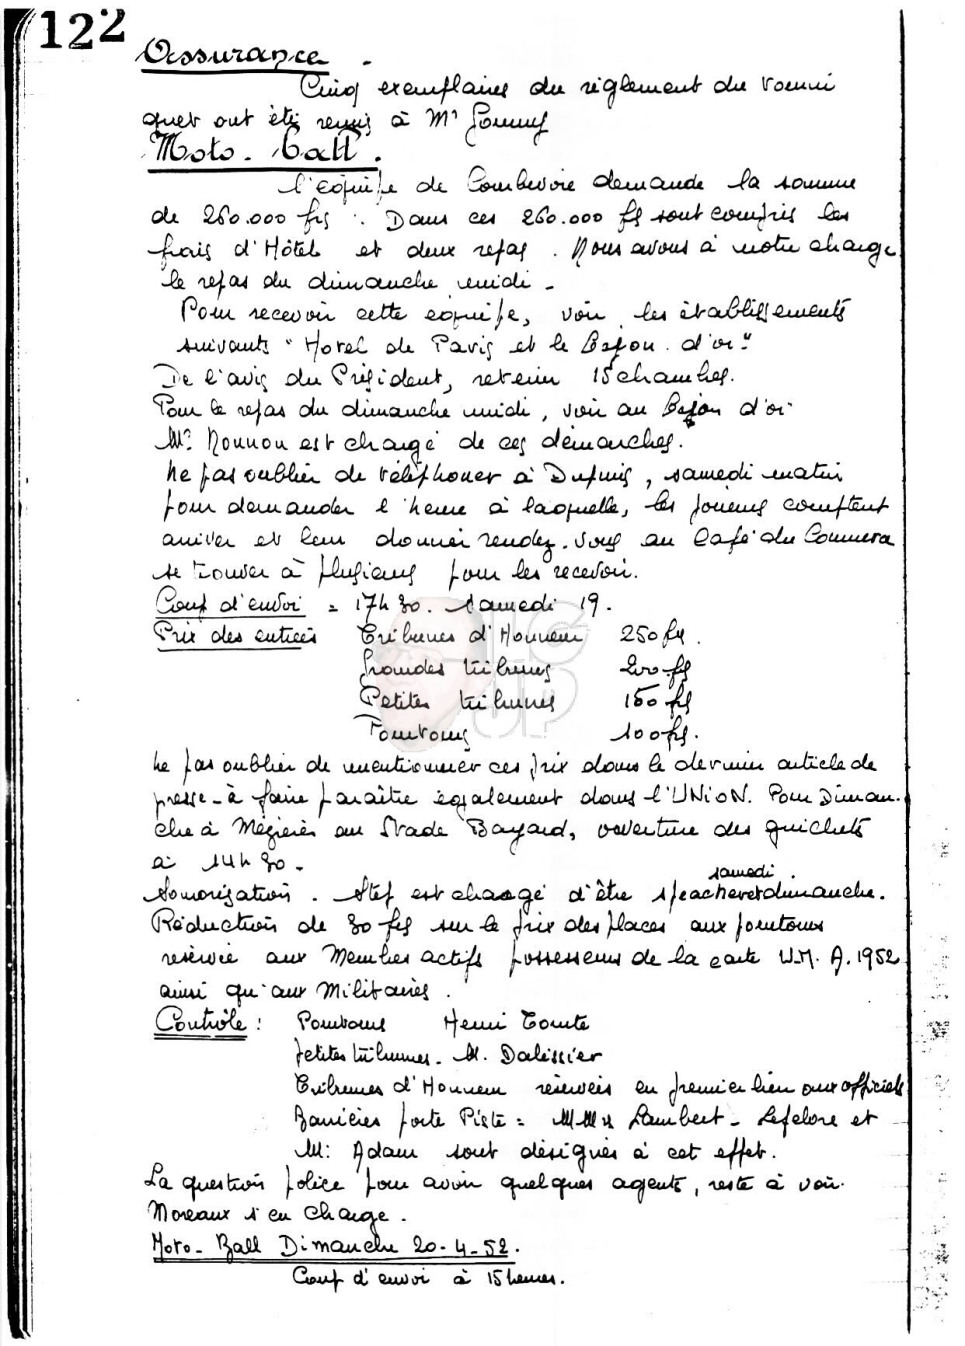 122
Assurance.
Cinq exemplaires du règlement du
quet ont été remis à Mr
Moto-Ball.
L'équipe de Courbevoie demande la somme
de 260.000 frs. Dans ces 260.000 frs sont compris les
frais d'Hôtel et deux repas. Nous avons à notre charge
le repas du dimanche midi -
Pour recevoir cette équipe, voir les établissements
suivants "Hotel de Paris et le Bejon d'or"
De l'avis du Président, retenir 15 chambres.
Pour le repas du dimanche midi, voir au Bejon d'or
Mr Nounou est chargé de ces démarches.
Ne pas oublier de téléphoner à Dupuis, samedi matin
pour demander l'heure à laquelle, les joueurs comptent
arriver et leur donner rendez-vous au Café du Commerce
se trouver à plusieurs pour les recevoir.
Coup d'envoi = 17h30. Samedi 19.
Prix des entrées Tribunes d'Honneur 250 frs.
Grandes tribunes 200 frs
Petites tribunes 150 frs
Pourtours 100 frs.
HC UP
Ne pas oublier de mentionner ces prix dans le dernier article de
presse - à faire paraître également dans l'UNION. Pour Diman-
che à Mézières au Stade Bayard, ouverture des guichets
à 14h30 -
samedi
Sonorisation. Stef est chargé d'être speacher et dimanche.
Réduction de 30 frs sur le prix des places aux pourtours
réservée aux Membres actifs possesseurs de la carte U.M.A. 1952
ainsi qu'aux Militaires.
Contrôle : Pourtours Henri Tomte
petites tribunes - M. Dalissier
Tribunes d'Honneur réservées en premier lieu aux officiels
Barrières porte Piste = MMrs Lambert - Lefebvre et
M: Adam sont désignés à cet effet.
La question police pour avoir quelques agents, reste à voir.
Moreaux s'en charge.
Moto-Ball Dimanche 20-4-52.
Coup d'envoi à 15 heures.